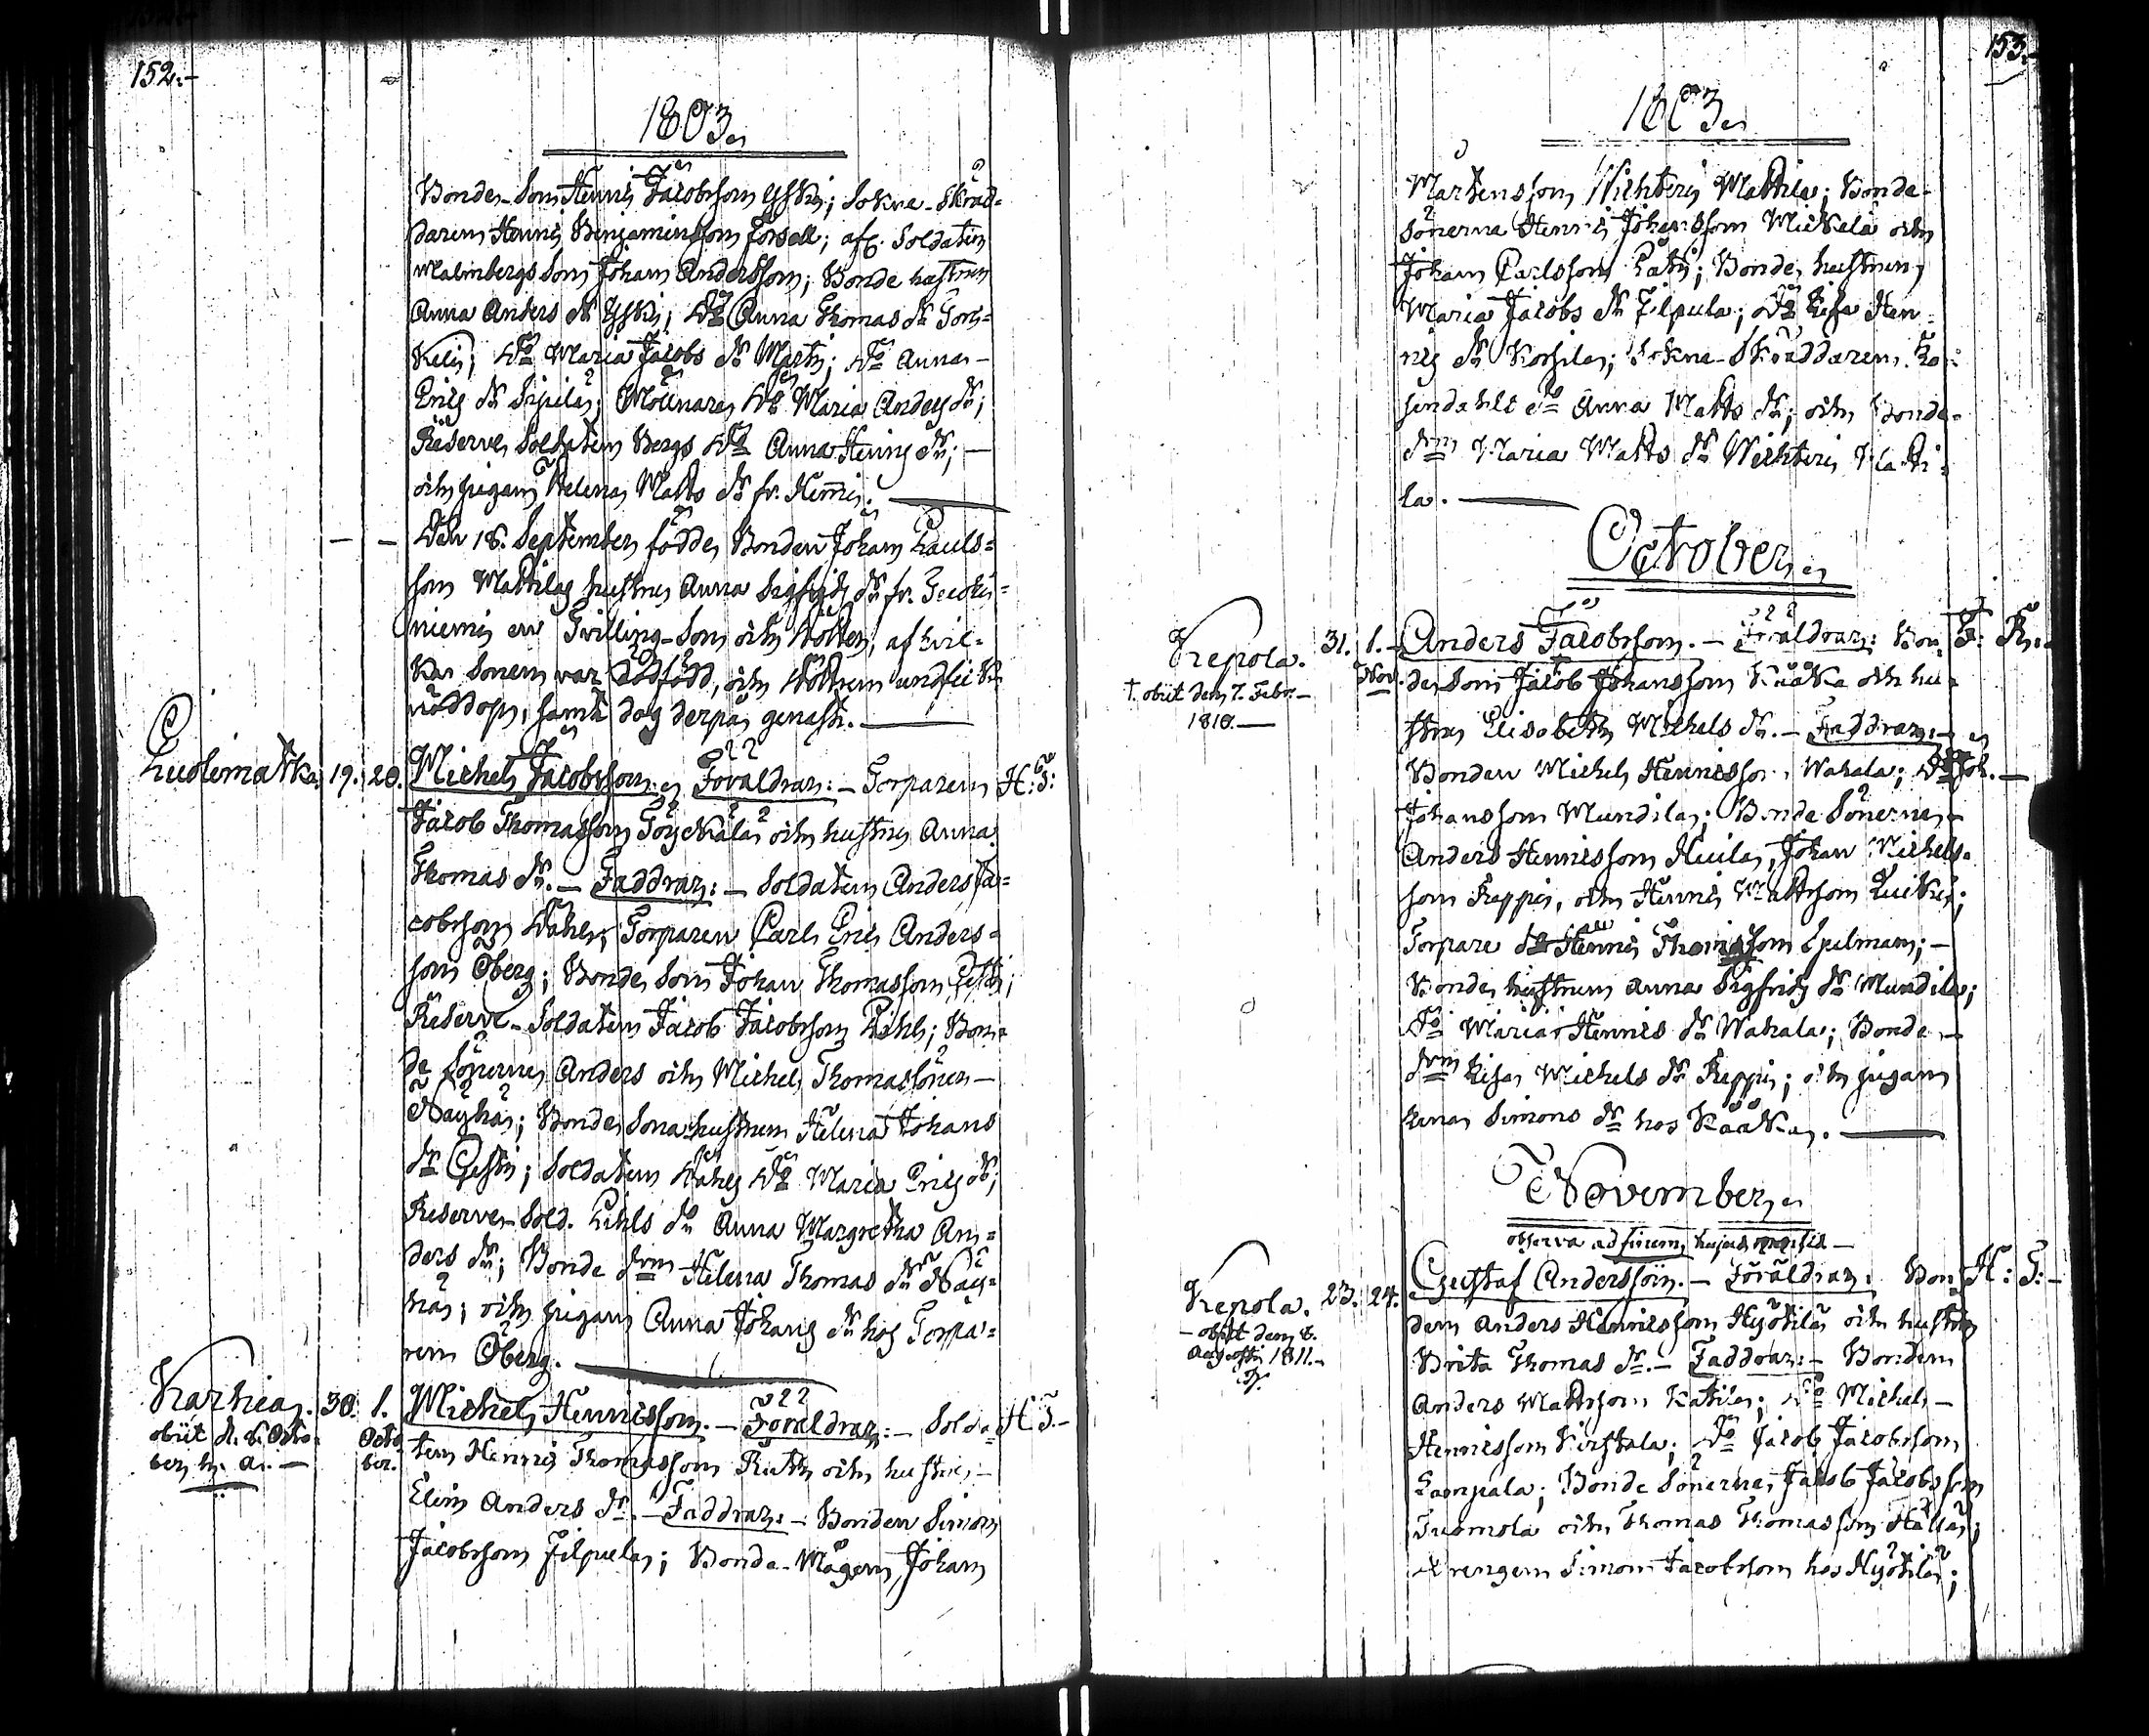 152.-
1803.
Bonde Son Henric Jacobsson Yski; Sokne-Skräd=
daren Henric Benjaminsson Forsell; afs. Soldaten
Malmbergs Son Johan Andersson; Bonde hustrun
Anna Anders dr Yski; Do Anna Thomas dr Tor=
keli; Do Maria Jacobs dr Martti; Do Anna
Erics dr Sipilä; Mölnarens Do Maria Anders dr;
Reserve Soldaten Bergs Do Anna Henrics dr; -
och pigan Helena Matts dr fr. Hemmi.
- - Den 18. September födde Bonden Johan Pauls=
son Mattilas hustru Anna Sigfrids dr fr.
niemi en Tvilling-Son och Dotter, af hvil=
ka Sonen var dödfödd, och Dottren undfick
nöddop, samt dog derpå genast.
Luolimatka. 19. 20. Michel Jacobsson. Föräldrar: - Torparen H: T:
Jacob Thomasson Töyckälä och hustru Anna
Thomas dr. - Faddrar: - Soldaten Anders Ja=
cobsson Dahl; Torparen Carl Eric Anders=
son Öberg; Bonde Son Johan Thomasson Gesti;
Reserve-Soldaten Jacob Jacobsson Lihl; Bon=
de Sönerne Anders och Michel Thomassöner -
Näyhä; Bonde Sona hustrun Helena Johans
dr Gesti; Soldaten Dahls Do Maria Erics dr;
Reserve-Sold. Lihls do Anna Margretha An=
ders dr; Bonde drn Helena Thomas dr Näy=
hä; och pigan Anna Johans dr hos Torpa=
ren Öberg.
Karhia. 30. 1. Michel Henricsson. - Föräldrar: - Solda= H: T. -
obiit d. 8. Octo= Octo
ber h. a. - ber. ten Henric Thomasson Ruth och hustru -
Elin Anders dr. - Faddrar: - Bonden Simon
Jacobsson Filpula; Bonde-Mågen Johan
153.-
1803.
Mårtensson Wichteri Mattila; Bonde
Sönerna Henric Johansson Mickelä och
Johan Carlsson; Bonde hustrun
Maria Jacobs dr Filpula; Do Lisa Hen=
rics dr Korsila; Sokne-Skräddaren Ro=
sendahls do Anna Matts dr; och Bonde
drn Maria Matts dr Wichteri Matti=
la.
October.
Krepola. 31. 1. Anders Jacobsson. - Föräldrar: Bon= F: R:
Nov. de Son Jacob Johansson Kääkä och hu=
† obiit den 7. Febr. -
1810. -
stru Elisabeth Michels dr. - Faddrar: -
Bonden Michel Henricsson Wahala; Do Joh. -
Johansson Mundila; Bonde Sönerne -
Anders Henricsson Huila, Johan Michels=
son Reppi, och Henric Mattsson;
Torpare do Henric Thomasson Spelman; -
Bonde hustrun Anna Sigfrids dr Mundila;
Do Maria Henrics dr Wahala; Bonde -
drn Lisa Michels dr Reppi; och pigan
Lena Simons dr hos Kääkä.
November.
observa ad finem hujus mensis -
Krepola. 23. 24. Gustaf Andersson. - Föräldrar: Bon= H: T: -
- obiit den 8.
Augusti 1811. -
den Anders Henricsson Hyötilä och hustru
Brita Thomas dr. - Faddrar: - Bonden
Anders Mattsson Katila; Do Michel -
Henricsson Kirstala; Do Jacob Jacobsson
Lampala; Bonde Sönerna Jacob Jacobsson
Tuomola och Thomas Thomasson Hällä;
Drengen Simon Jacobsson hos Hyötilä;